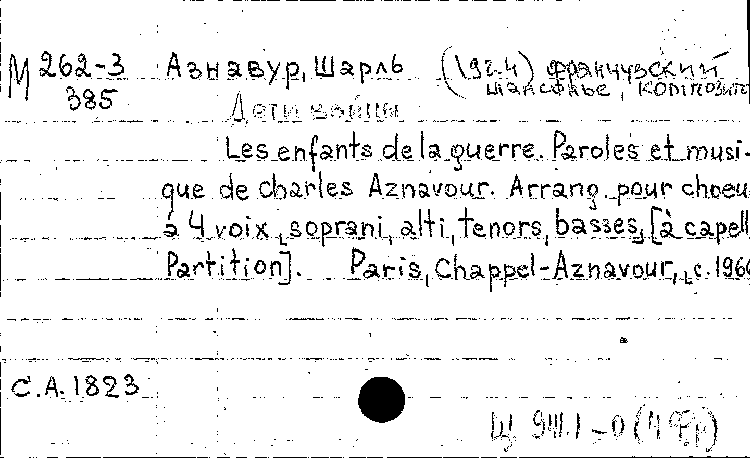 М 262-3 Азнавур, Шарль (1924) французский
385 шансонье, композито
Дети войны
Les enfants de la guerre. Paroles et musi-
que de charles Aznavour. Arrang. pour choeu
à 4 voix, soprani, alti, tenors, basses, [à capell
Partition]. Paris, Chappel-Aznavour, c. 1966
C.A. 1823
Ц 9 Ш.1-0 (4 Фр)